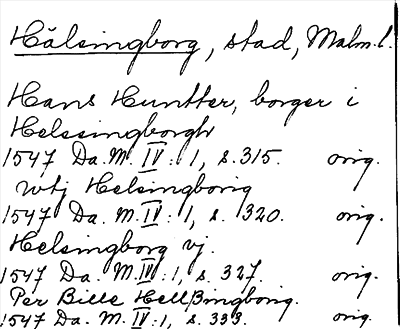 Hälsingborg, stad, Malm.l.
Hans Huntter, borger i
Helssingborgh
1547 Da. M. IV: 1, s. 315. orig.
wtj Helsingborig
1547 Da. M. IV: 1, s. 320. orig.
Helsingborg vj.
1547 Da. M. IV: 1, s. 327. orig.
Per Bille Hellßingborig.
1547 Da. M. IV: 1, s. 333. orig.